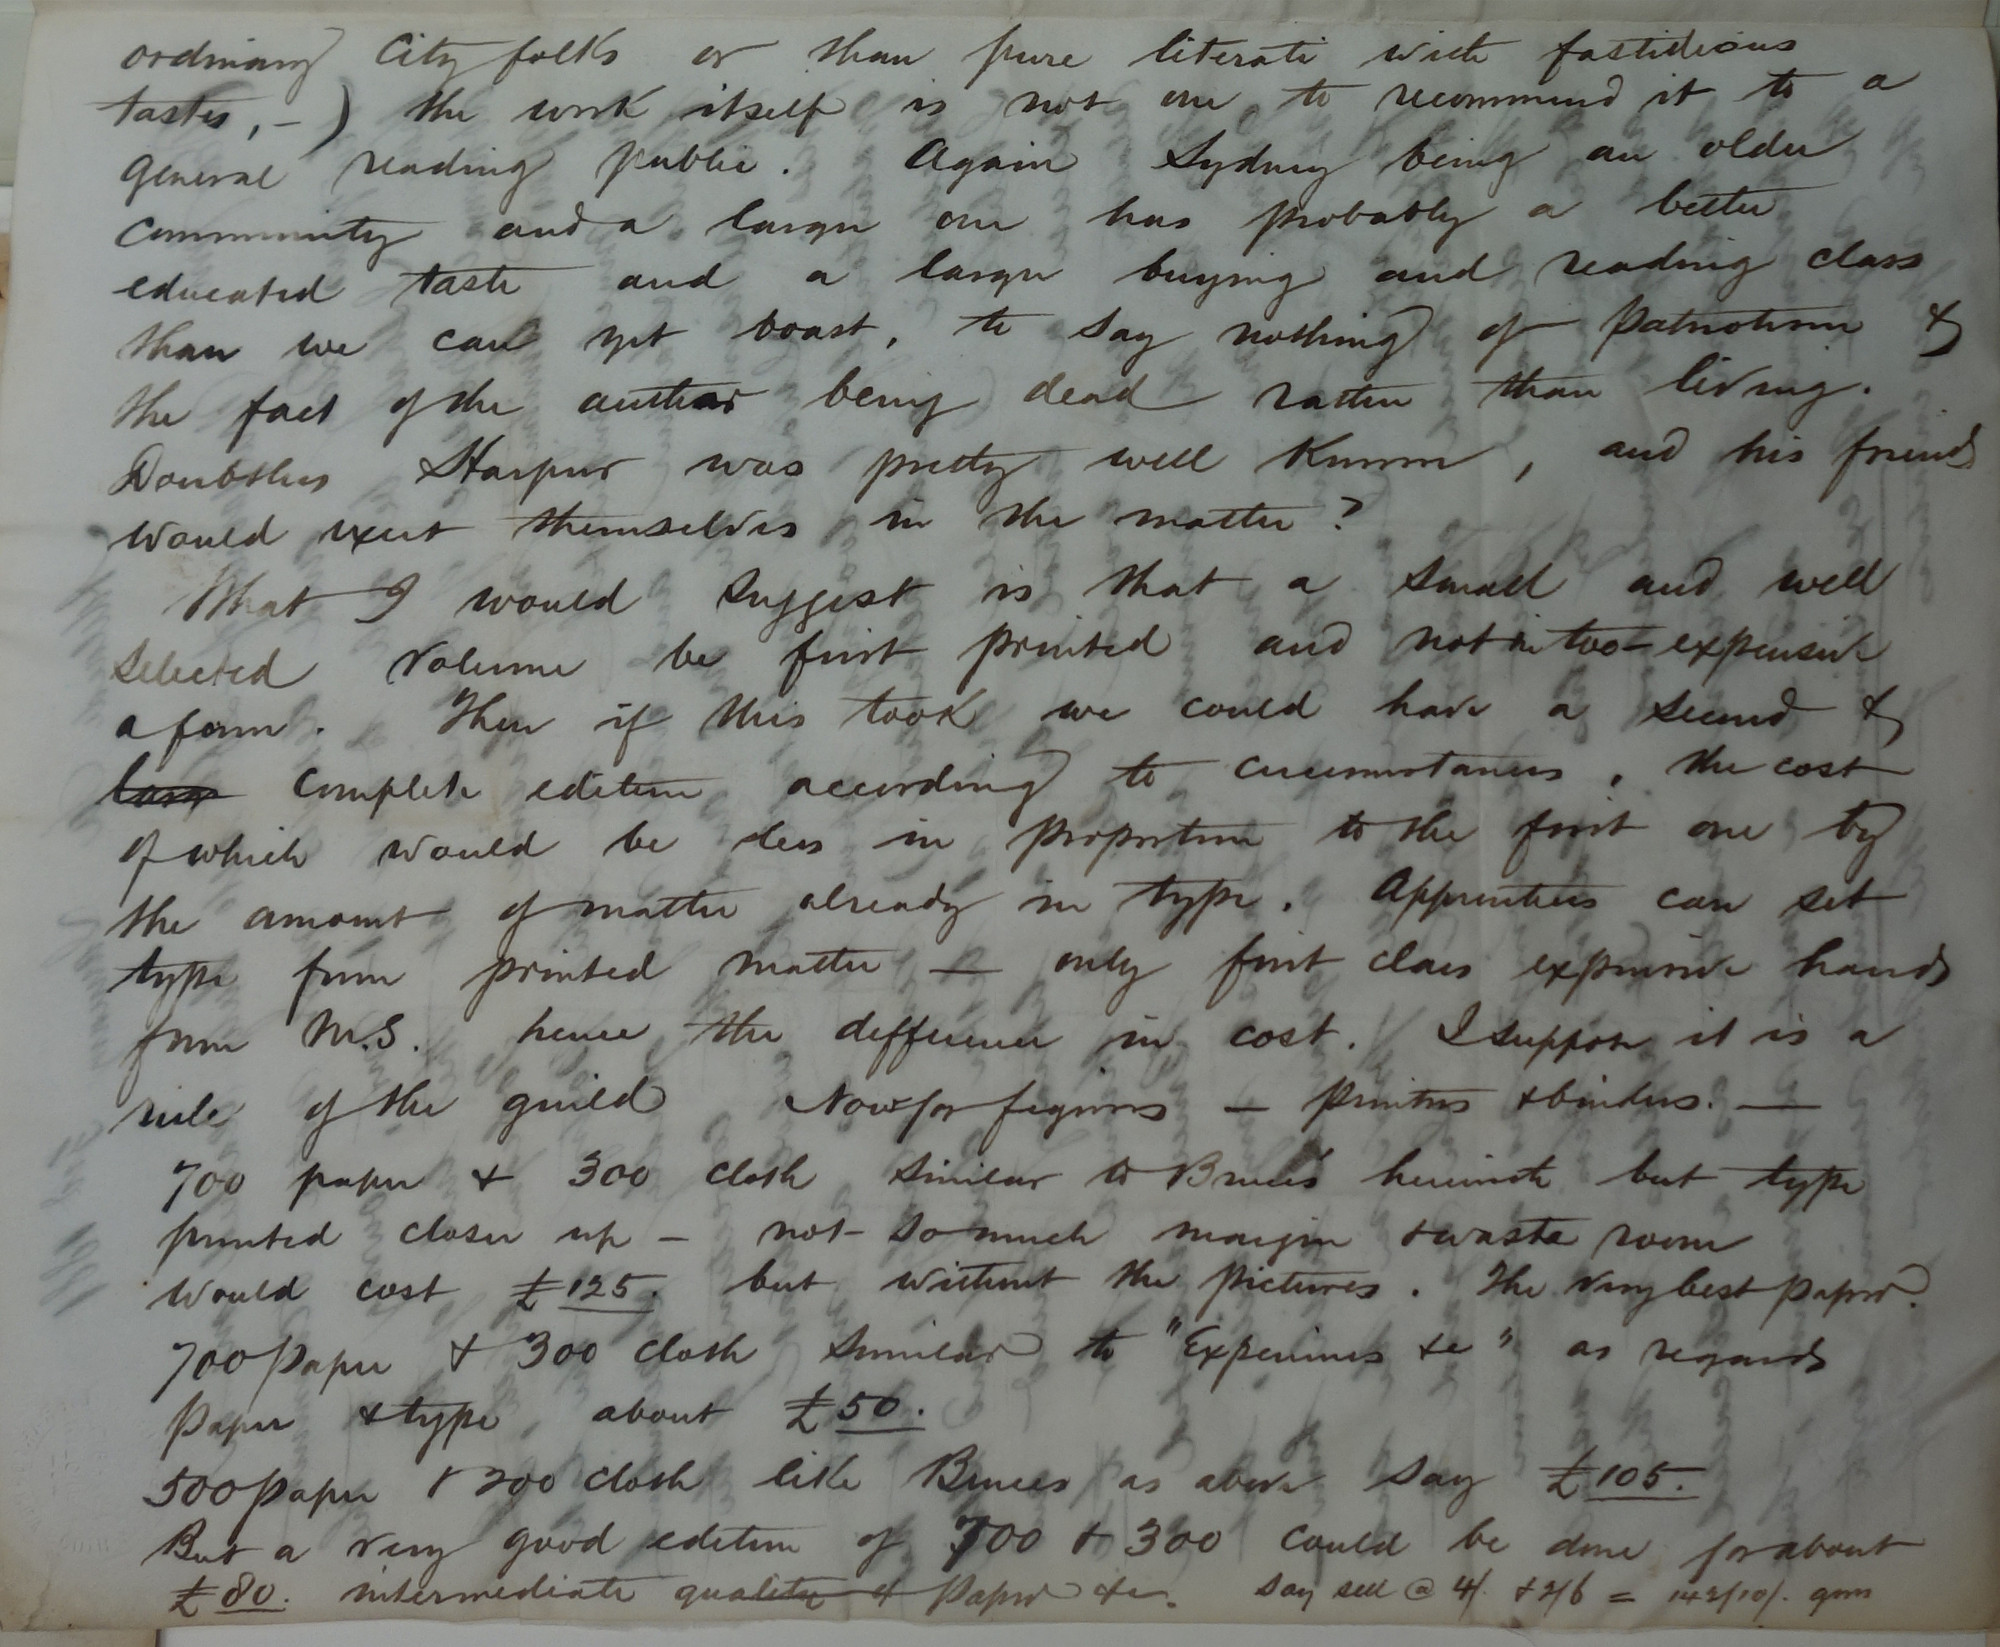 ordinary City folks or than pure literati with fastidious
tastes, -) the work itself is not one to recommend it to a
general reading public. Again Sydney being an older
community and a larger one has probably a better
educated taste and a larger buying and reading class
than we can yet boast, to say nothing of patriotism &
the fact of the author being dead rather than living.
Doubtless Harpur was pretty well known, and his friends
would exert themselves in the matter?
What I would suggest is that a small and well
selected volume be first printed and not in too expensive
a form. Then if this took we could have a second &
larg complete edition according to circumstances, the cost
of which would be less in proportion to the first one by
the amount of matter already in type. Apprentices can set
type from printed matter — only first class expensive hands
from M.S. hence the difference in cost. I suppose it is a
rule of the guild Now for figures — printers & binders. —
700 paper & 300 cloth similar to Bruce's herewith but type
printed closer up — not so much margin & waste room
would cost £125. but without the pictures. The very best paper.
700 paper & 300 cloth similar to "Experiences &c" as regards
paper & type about £50.
500 paper & 200 cloth like Bruces as above say £105.
But a very good edition of 700 & 300 could be done for about
£80. intermediate quality of paper &c. Say sell @ 4/. & 2/6 = 142/10/.